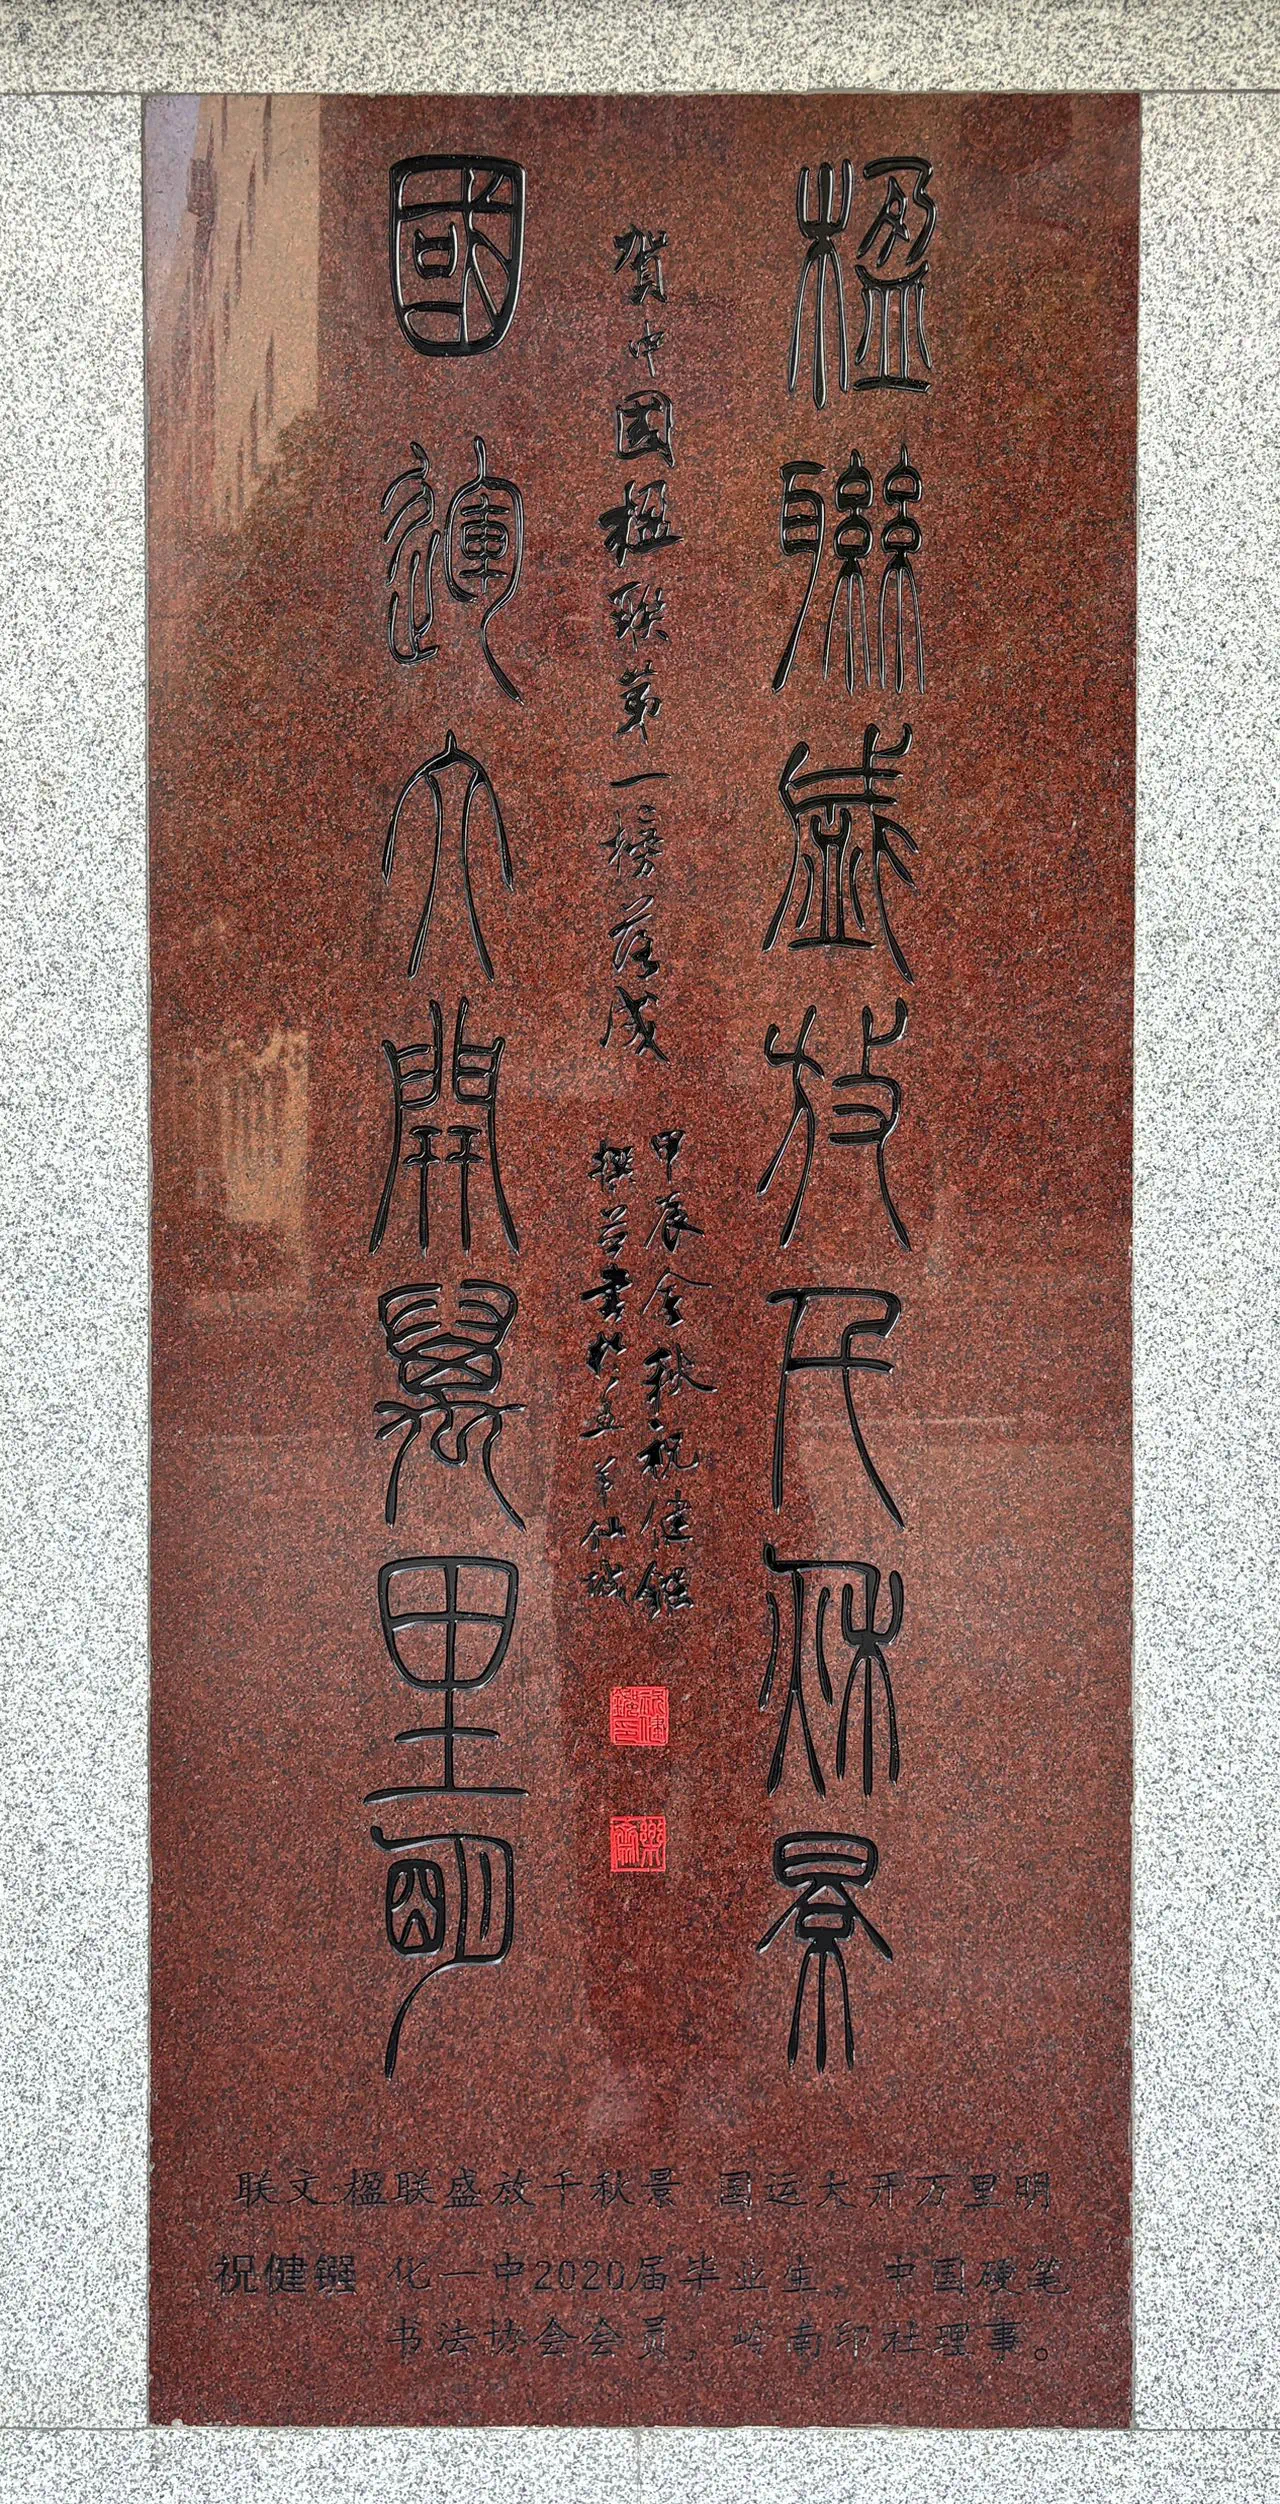 楹聯盛放千秋景
賀中国楹联第一榜落成
甲辰金秋祝健鏹
撰并書於五羊仙城
國運大開萬里明
联文:楹联盛放千秋景 国运大开万里明
祝健镪 化一中2020届毕业生。中国硬笔
书法协会会员,岭南印社理事。